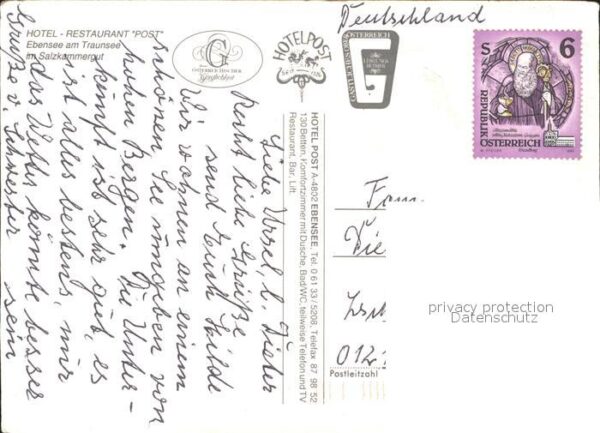 HOTEL - RESTAURANT "POST"
Ebensee am Traunsee
im Salzkammergut
G
ÖSTERREICHISCHER
Gastlichkeit
HOTELPOST
SEIT
ÖSTERREICH
HOTEL POST A-4802 EBENSEE, Tel. 0 61 33/5208, Telefax 87 98 52
130 Betten, Komfortzimmer mit Dusche, Bad/WC, teilweise Telefon und TV
Restaurant, Bar, Lift
Liebe Ursel, l. Dieter
Recht liebe Grüße
send Euch Hilde
Wir wohnen an einem
schönen See umgeben von
hohen Bergen. Die Unter-
kunft ist sehr gut, es
ist alles bestens, nur
das Wetter könnte besser
sein
Grüße v. Schwester
Deutschland
S 6
REPUBLIK
ÖSTERREICH
Fam.
Die
012
Postleitzahl
privacy protection
Datenschutz